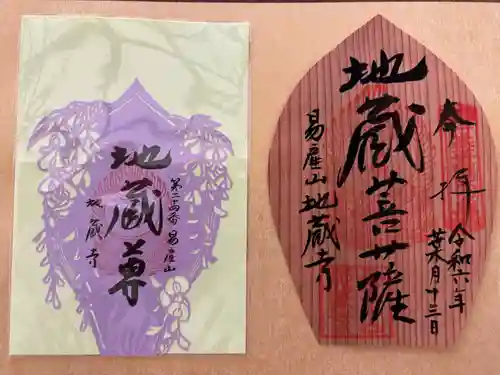 第二十四番 易産山
地蔵尊
地蔵寺
奉拝
令和六年
葉月十三日
地蔵菩薩
易産山地蔵寺